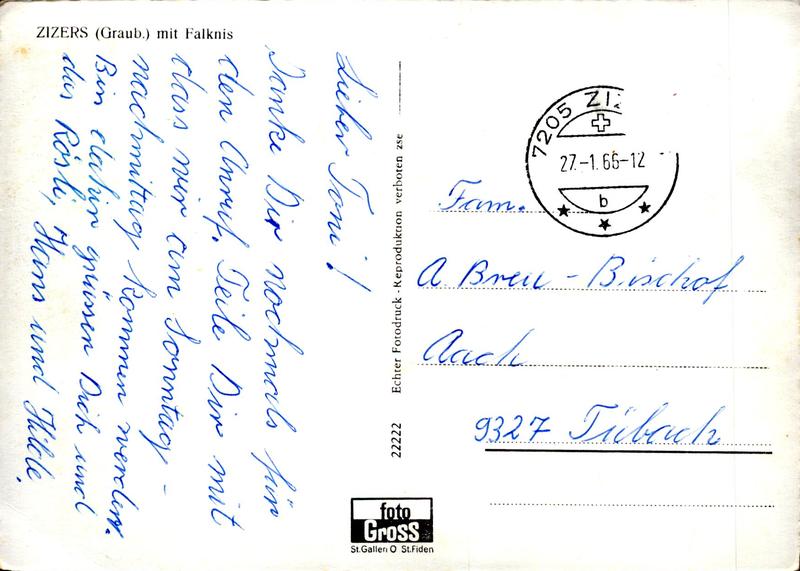 ZIZERS (Graub.) mit Falknis
Lieber Toni!
Danke Dir nochmals für
den Anruf. Teile Dir mit
dass wir am Sonntag-
nachmittag kommen werden.
Bin dahin grüssen Dich und
das Rösli, Hans und Hilde.
Echter Fotodruck - Reproduktion verboten zse
22222
foto
Gross
St.Gallen O St.Fiden
7205 ZI
27.-1.66-12
b
Fam.
A Breu - Bischof
Aach
9327 Tübach